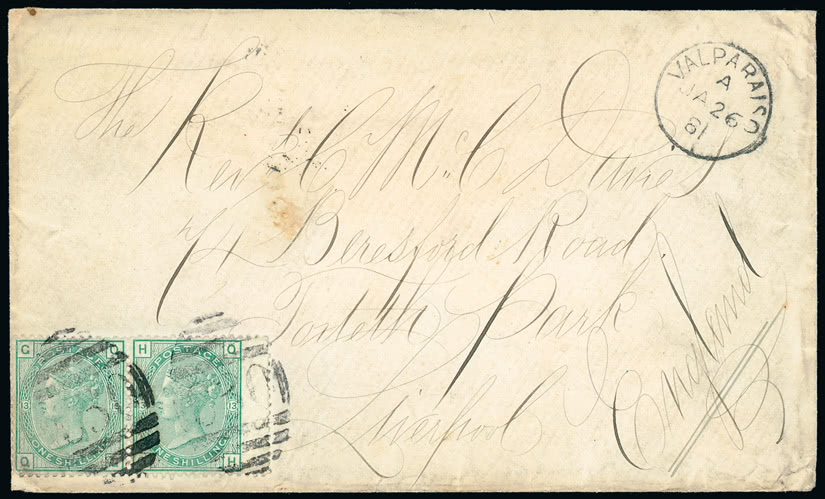 VALPARAISO
A
JA 26
81
The
Revd C. McC Davies
74 Beresford Road
Toxteth Park
Liverpool
England
G Q
POSTAGE
13 13
ONE SHILLING
Q G
H Q
POSTAGE
13 13
ONE SHILLING
Q H